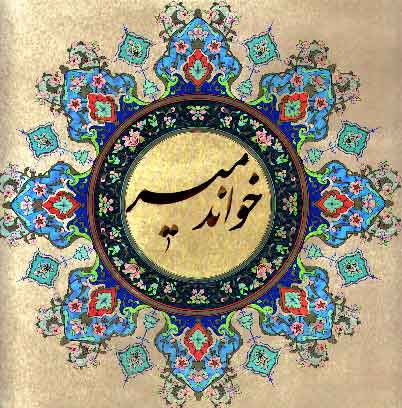 خواندمیر